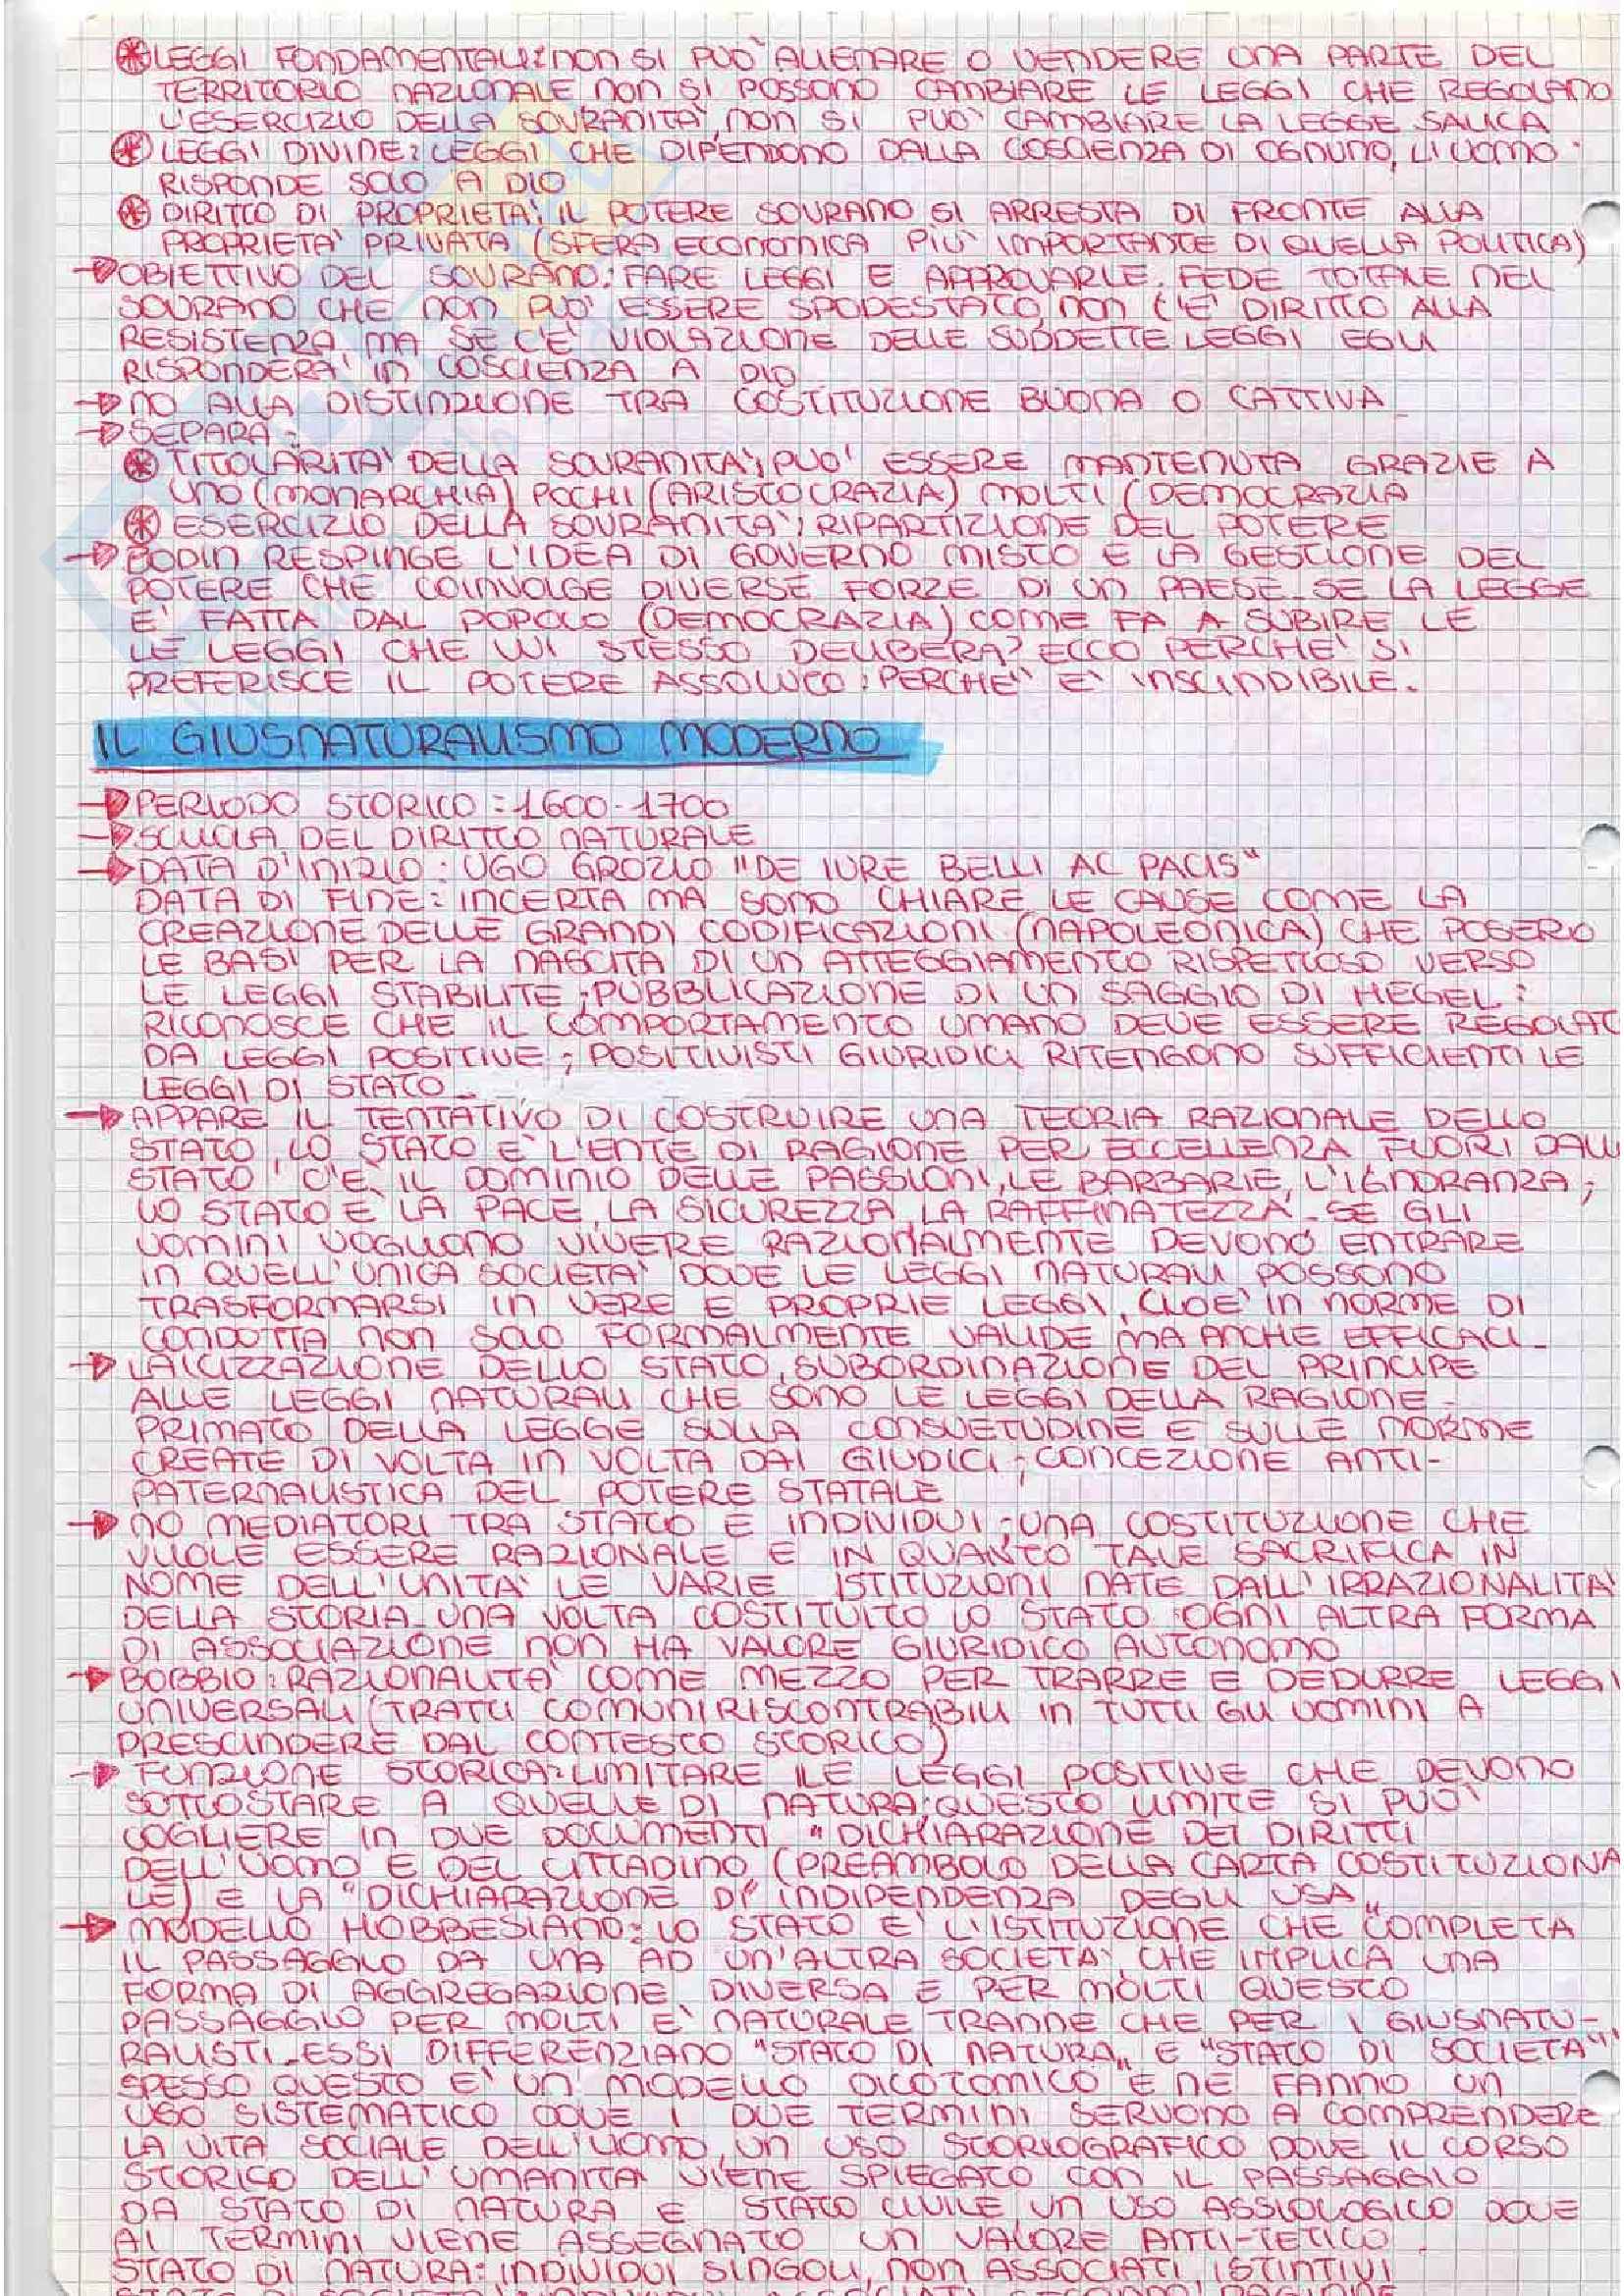 ⊛ LEGGI FONDAMENTALI: NON SI PUO' ALIENARE O VENDERE UNA PARTE DEL
TERRITORIO NAZIONALE NON SI POSSONO CAMBIARE LE LEGGI CHE REGOLANO
L'ESERCIZIO DELLA SOVRANITA', NON SI PUO' CAMBIARE LA LEGGE SALICA
⊛ LEGGI DIVINE: LEGGI CHE DIPENDONO DALLA COSCIENZA DI OGNUNO, L'UOMO
RISPONDE SOLO A DIO
⊛ DIRITTO DI PROPRIETA': IL POTERE SOVRANO SI ARRESTA DI FRONTE ALLA
PROPRIETA' PRIVATA (SFERA ECONOMICA PIU' IMPORTANTE DI QUELLA POLITICA)
→ OBIETTIVO DEL SOVRANO: FARE LEGGI E APPROVARLE. FEDE TOTALE NEL
SOVRANO CHE NON PUO' ESSERE SPODESTATO, NON C'E' DIRITTO ALLA
RESISTENZA MA SE C'E' VIOLAZIONE DELLE SUDDETTE LEGGI EGLI
RISPONDERA' IN COSCIENZA A DIO
→ NO ALLA DISTINZIONE TRA COSTITUZIONE BUONA O CATTIVA
→ SEPARA:
⊛ TITOLARITA' DELLA SOVRANITA'; PUO' ESSERE MANTENUTA GRAZIE A
UNO (MONARCHIA) POCHI (ARISTOCRAZIA) MOLTI (DEMOCRAZIA
⊛ ESERCIZIO DELLA SOVRANITA'; RIPARTIZIONE DEL POTERE
→ BODIN RESPINGE L'IDEA DI GOVERNO MISTO E LA GESTIONE DEL
POTERE CHE COINVOLGE DIVERSE FORZE DI UN PAESE. SE LA LEGGE
E' FATTA DAL POPOLO (DEMOCRAZIA) COME FA A SUBIRE LE
LE LEGGI CHE LUI STESSO DELIBERA? ECCO PERCHE' SI
PREFERISCE IL POTERE ASSOLUTO: PERCHE' E' INSCINDIBILE.
IL GIUSNATURALISMO MODERNO
→ PERIODO STORICO: 1600-1700
→ SCUOLA DEL DIRITTO NATURALE
→ DATA D'INIZIO: UGO GROZIO "DE IURE BELLI AC PACIS"
DATA DI FINE: INCERTA MA SONO CHIARE LE CAUSE COME LA
CREAZIONE DELLE GRANDI CODIFICAZIONI (NAPOLEONICA) CHE POSERO
LE BASI PER LA NASCITA DI UN ATTEGGIAMENTO RISPETTOSO VERSO
LE LEGGI STABILITE; PUBBLICAZIONE DI UN SAGGIO DI HEGEL:
RICONOSCE CHE IL COMPORTAMENTO UMANO DEVE ESSERE REGOLAT
DA LEGGI POSITIVE; POSITIVISTI GIURIDICI RITENGONO SUFFICIENTI LE
LEGGI DI STATO
→ APPARE IL TENTATIVO DI COSTRUIRE UNA TEORIA RAZIONALE DELLO
STATO, LO STATO E' L'ENTE DI RAGIONE PER ECCELLENZA FUORI DALL
STATO C'E' IL DOMINIO DELLE PASSIONI, LE BARBARIE, L'IGNORANZA;
LO STATO E' LA PACE, LA SICUREZZA, LA RAFFINATEZZA. SE GLI
UOMINI VOGLIONO VIVERE RAZIONALMENTE DEVONO ENTRARE
IN QUELL'UNICA SOCIETA' DOVE LE LEGGI NATURALI POSSONO
TRASFORMARSI IN VERE E PROPRIE LEGGI, CIOE' IN NORME DI
CONDOTTA NON SOLO FORMALMENTE VALIDE MA ANCHE EFFICACI.
→ LAICIZZAZIONE DELLO STATO, SUBORDINAZIONE DEL PRINCIPE
ALLE LEGGI NATURALI CHE SONO LE LEGGI DELLA RAGIONE.
PRIMATO DELLA LEGGE SULLA CONSUETUDINE E SULLE NORME
CREATE DI VOLTA IN VOLTA DAI GIUDICI; CONCEZIONE ANTI-
PATERNALISTICA DEL POTERE STATALE
→ NO MEDIATORI TRA STATO E INDIVIDUI; UNA COSTITUZIONE CHE
VUOLE ESSERE RAZIONALE E IN QUANTO TALE SACRIFICA IN
NOME DELL'UNITA' LE VARIE ISTITUZIONI NATE DALL'IRRAZIONALITA'
DELLA STORIA. UNA VOLTA COSTITUITO LO STATO OGNI ALTRA FORMA
DI ASSOCIAZIONE NON HA VALORE GIURIDICO AUTONOMO
→ BOBBIO: RAZIONALITA' COME MEZZO PER TRARRE E DEDURRE LEGGI
UNIVERSALI (TRATTI COMUNI RISCONTRABILI IN TUTTI GLI UOMINI A
PRESCINDERE DAL CONTESTO STORICO)
→ FUNZIONE STORICA: LIMITARE LE LEGGI POSITIVE CHE DEVONO
SOTTOSTARE A QUELLE DI NATURA; QUESTO LIMITE SI PUO'
COGLIERE IN DUE DOCUMENTI "DICHIARAZIONE DEI DIRITTI
DELL'UOMO E DEL CITTADINO (PREAMBOLO DELLA CARTA COSTITUZIONA
LE) E LA "DICHIARAZIONE DI INDIPENDENZA DEGLI USA"
→ MODELLO HOBBESIANO: LO STATO E' L'ISTITUZIONE CHE COMPLETA
IL PASSAGGIO DA UNA AD UN'ALTRA SOCIETA', CHE IMPLICA UNA
FORMA DI AGGREGAZIONE DIVERSA E PER MOLTI QUESTO
PASSAGGIO PER MOLTI E' NATURALE TRANNE CHE PER I GIUSNATU-
RALISTI. ESSI DIFFERENZIANO "STATO DI NATURA" E "STATO DI SOCIETA'"
SPESSO QUESTO E' UN MODELLO DICOTOMICO E NE FANNO UN
USO SISTEMATICO DOVE I DUE TERMINI SERVONO A COMPRENDERE
LA VITA SOCIALE DELL'UOMO, UN USO STORIOGRAFICO DOVE IL CORSO
STORICO DELL'UMANITA' VIENE SPIEGATO CON IL PASSAGGIO
DA STATO DI NATURA E STATO CIVILE UN USO ASSIOLOGICO DOVE
AI TERMINI VIENE ASSEGNATO UN VALORE ANTI-TETICO
STATO DI NATURA: INDIVIDUI SINGOLI, NON ASSOCIATI ISTINTIVI